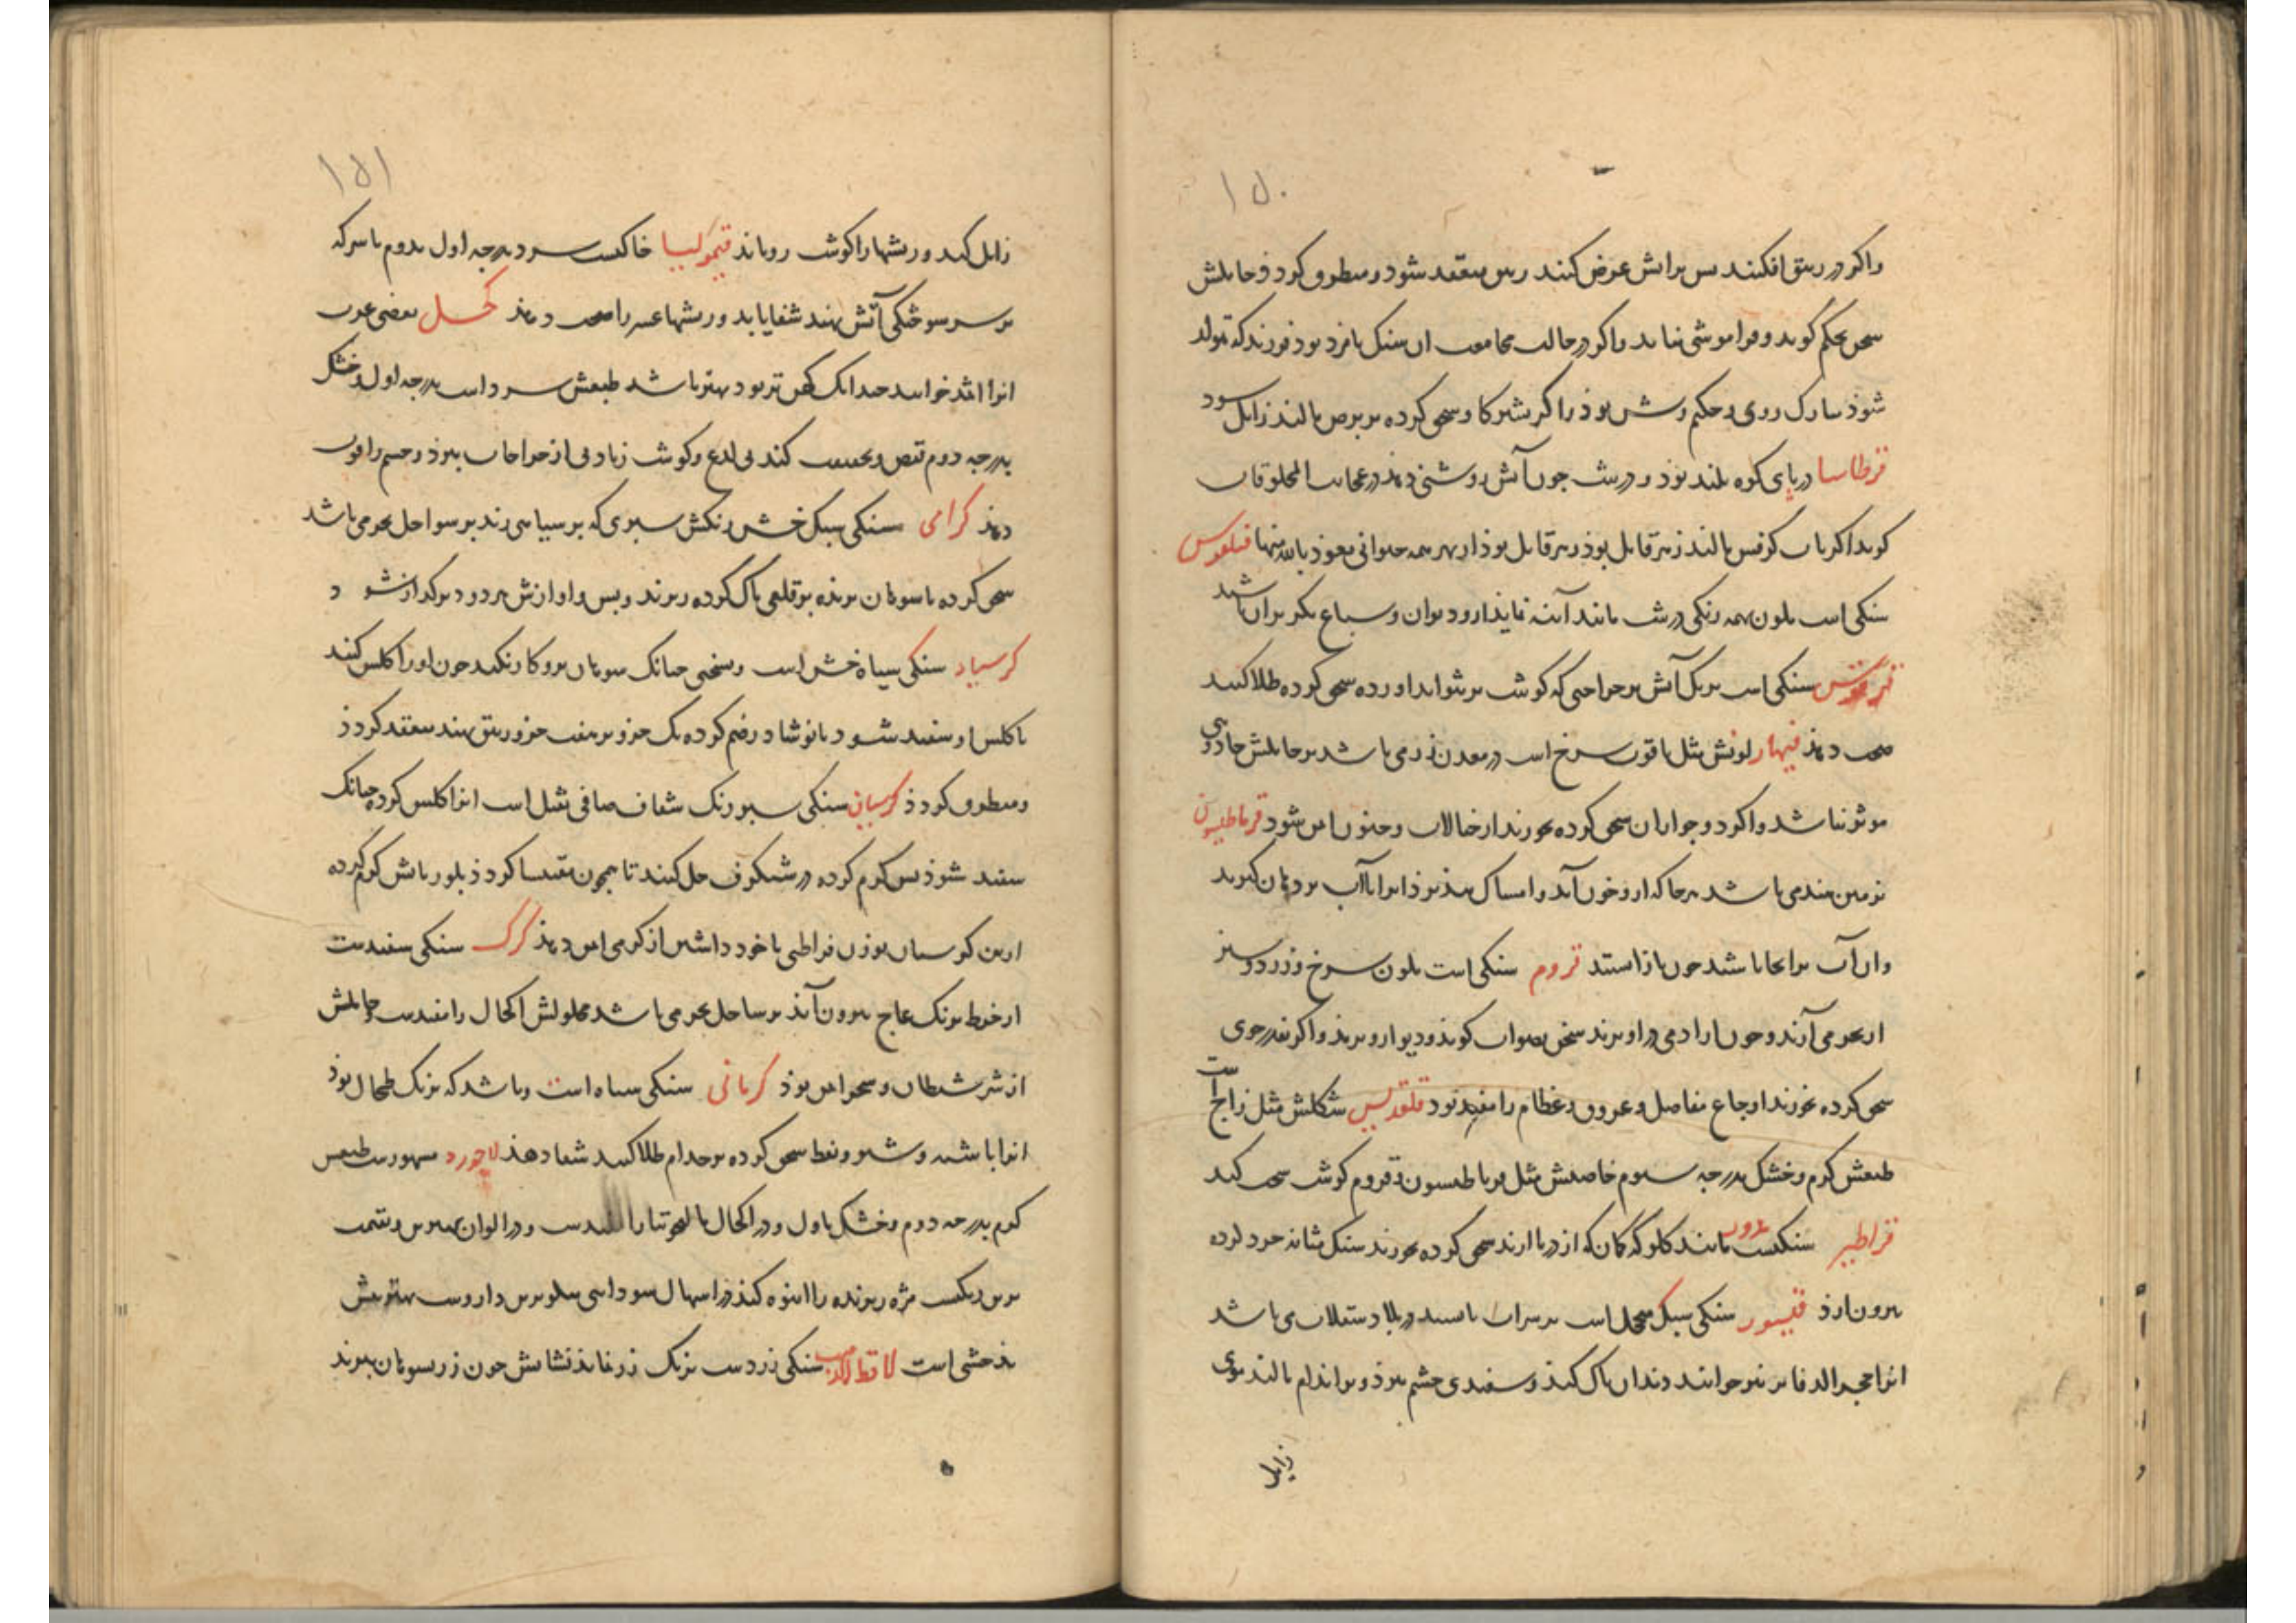 ۱۵۰
واکر در ریبق افکنند بس براتش عرض کنند ریبق منعقد شود و منطرق کردد حاملش
سخن محکم کوید و فراموشی نیاید واکر در حالت مجامعت ان سنک با مرد بود فرزند که تولد
شود مبارک روی و حکیم وش بوذ و اکر بشیر کاو سحق کرده بر برص مالند زایل شود
قرطاسا در پای کوه بلند بوذ و در شب جون آتش روشنی دهد در عجایب المخلوقات
کوید اکر باب کرفس مالند زهر قاتل بوذ زهر قاتل بوذ از بهر همه حیوانی نعوذ بالله منها
سنکی است بلون همه رنکی در شب مانند آینه نماید ازو دیوان و سباع بکریزان باشد
سنکی است برنک آتش بر جراحتی که کوشت بر نتواند اورده سحق کرده طلا کنند
صحت دهد قیهار لونش مثل یاقوت سرخ است در معدن زر می باشد بر حاملش جادوی
موثر نباشد و اکر جواران سحق کرده بخورند از خیالات و جنون ایمن شود قرماطیسون
بزمین هند می باشد هر جا که ازو خون آید و امساک نپذیرد انرا با آب بر دهان کیرند
وان آب بر انجا باشد خون باز استد قروم سنکی است بلون سرخ و زرد و سبز
از بحر می آرند و جون ادمی در او برند سخن بصواب کوید و دیو ازو برمد و اکر بقدر جوی
سحق کرده بخورند اوجاع مفاصل و عروق و عظام را مفید بود قلقدیس شکلش مثل زاج است
طبعش کرم و خشک بدرجه سوم خاصیتش مثل قرماطیسون و قروم کوشت سحت کند
قراطیر سنکیست مدور مانند کلوکه کمان که از دریا ارند سحق کرده بخورند سنک مثانه خرد کرده
بیرون ارد قیسور سنکی سبک متخلخل است بر سر آب باستد در بلاد سقلاب می باشد
انرا حجر الدفاتر نیز خوانند دندان پاک کند و سفیدی چشم ببرد و بر اندام مالند موی
زایل
۱۵۱
زایل کند و ریشها را کوشت رویاند قیمولیا خاکست سرد بدرجه اول بدوم با سرکه
بر سر سوختکی آتش نهند شفا یابد و ریشها عسر را صحت دهد کحل بعضی عرب
انرا اثمد خوانند جندانک کهن تر بود بهتر باشد طبعش سرد است بدرجه اول و خشک
بدرجه دوم قبض و تجفیف کند بی لدع و کوشت زیادتی از جراحات ببرد و جسم را قوت
دهد کرامی سنکی سبک خشن رنکش سبزی که بر سیاهی زند بر سواحل بحر می باشد
سحق کرده با سوهان برنده بر قلعی پاک کرده ریزند و بس و اوازش هر دو در کداز شود
کرسیاد سنکی سیاه خشن است و سختی جنانک سوهان برو کار نکند جون او را کلس کنند
تا کلس او سفید شود با نوشادر ضم کرده یک جزو بر هفت جزو ریبق نهند منعقد کردد
و منطرق کردد کرسیان سنکی سبز رنک شفاف صافی ثقیل است انرا کلس کرده جنانک
سفید شود بس کرم کرده در شنکرف حل کنند تا همجون مقنیسا کردد بلور باتش کرم کرده
ازین کرسیان بوزن قیراطی با خود داشتن از کرمی امن دهد کرک سنکی سفیدست
از خرط برنک عاج بیرون آید بر ساحل بحر می باشد محلولش اکحال را مفیدست حاملش
از شر شیطان و سحر امن بوذ کرمانی سنکی سیاه است و باشد که برنک طحال بوذ
انرا با شب و شیر و نفط سحق کرده بر جذام طلا کنند شفا دهد لاجورد مشهورست طبعش
کرم بدرجه دوم و خشک باول و در اکحال با توتیا را مفیدست و در الوان بهترین رنکست
برص مژه ریزنده را انبوه کند در اسهال سوداوی نیکوترین داروست بهترینش
بدخشی است لاقط الذهب سنکی زردست برنک زر نماید نشانش جون زر بسوهان ببرند